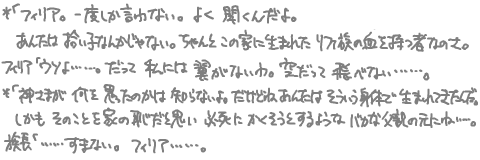 *「フィリア。一度しか言わない。よく聞くんだよ。
あんたは拾い子なんかじゃない。ちゃんとこの家に生まれたリフ族の血を持つ者なのさ。
フィリア「ウソよ……。だって私には翼がないわ。空だって飛べない……。
*「神さまが何を思ったのかは知らないよ。だけどねあんたはそういう身体で生まれてきたんだ。
しかもそのことを家の恥だと思い必死にかくそうとするようなバカな父親の元にね…。
族長「……すまない。フィリア……。